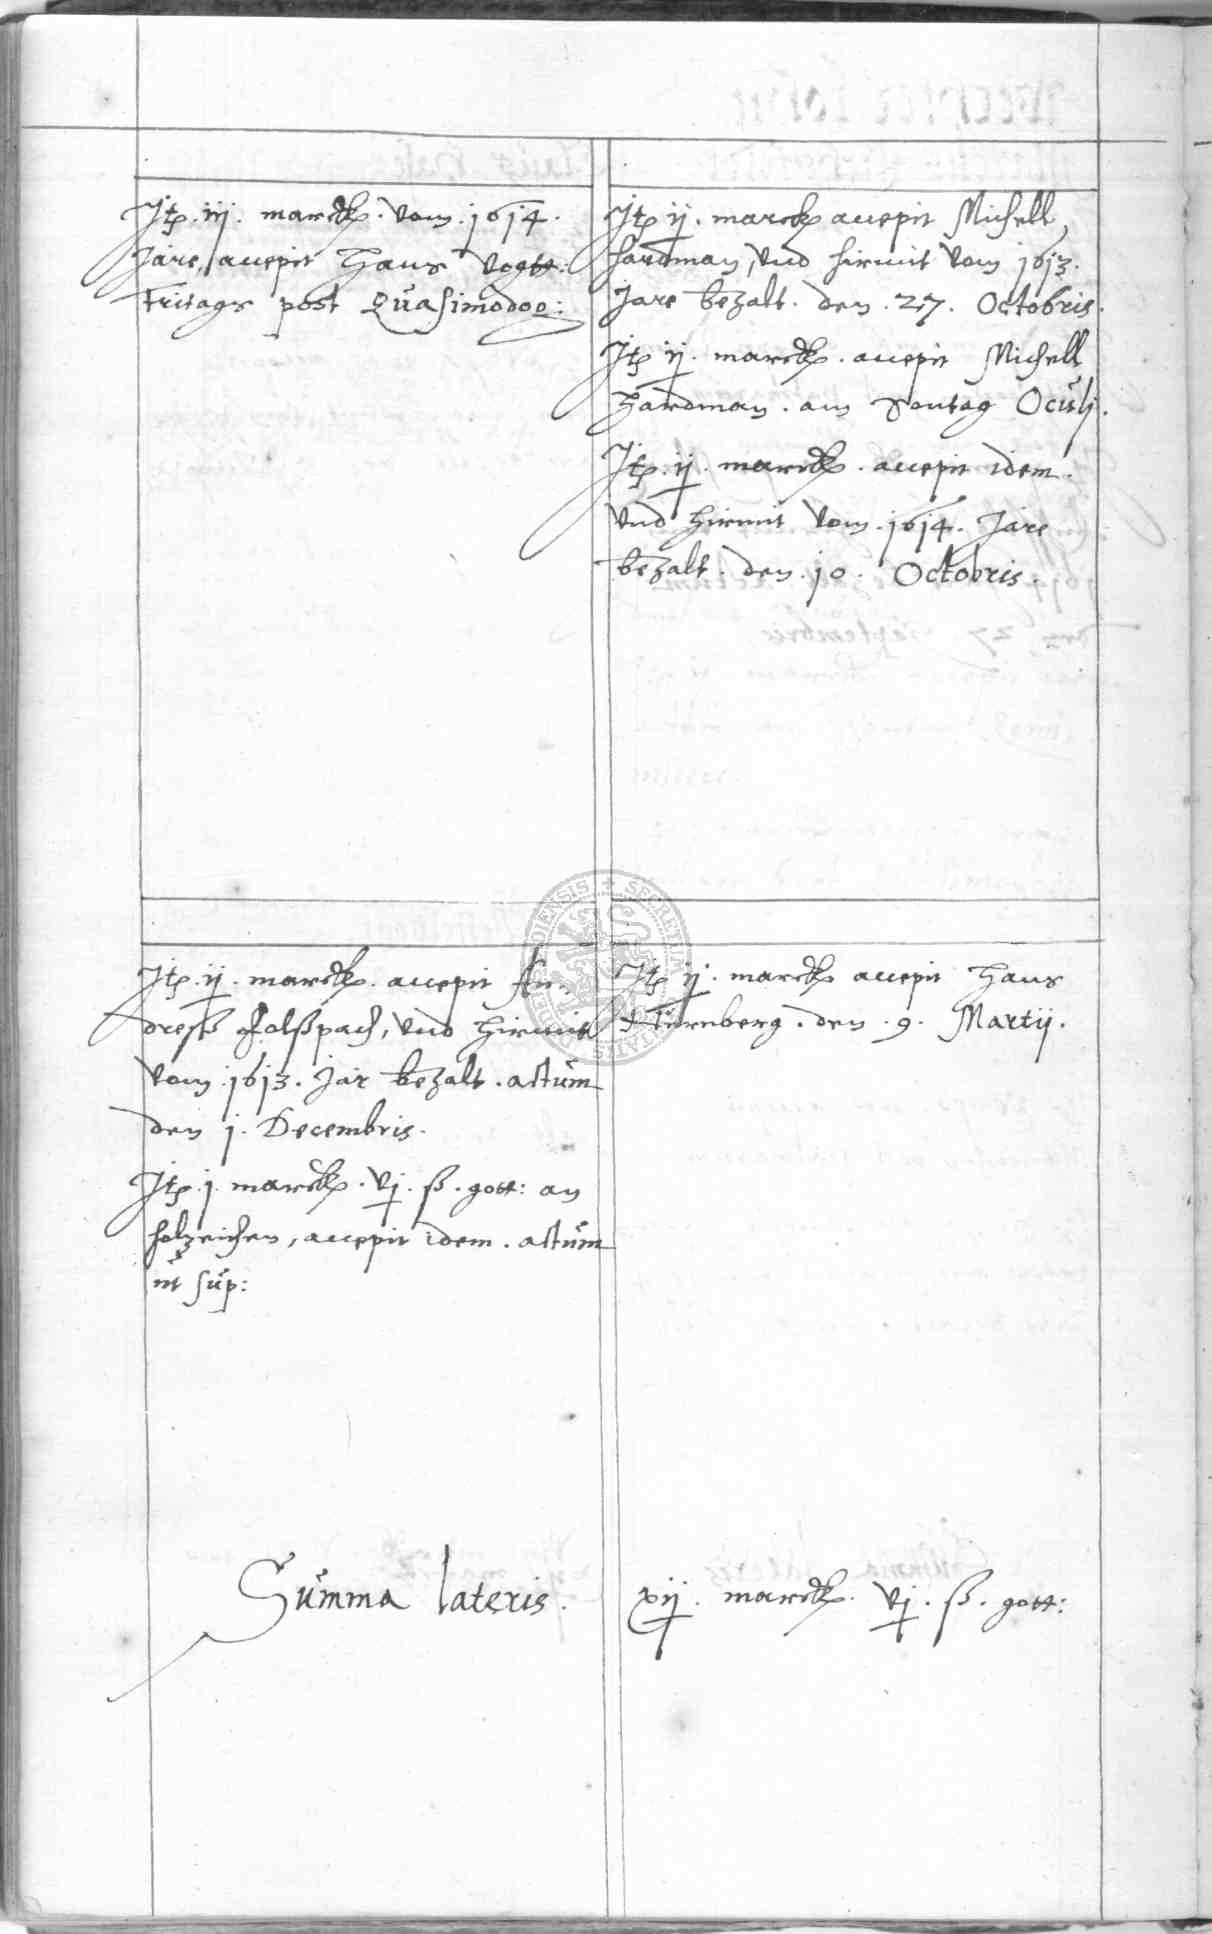 Jtp. iij. marck. Vom. 1614.
Jare, accepit Hans Vogtt.
Fritags post Quasimodog:
Jtp ij. marck accepit Michell
hardman, vnd hirmit Vom 1613.
Jare bezalt. den. 27. Octobris.
Jtp ij. marck. accepit Michell
Hardman. am Sontag Oculj.
Jtp. ij. marck. accepit idem.
Vnd hirmit Vom. 1614. Jare
bezalt. den. 10. Octobris.
Jtp. ij. marck. accepit An-
dreß holßpach, vnd hirmit
Vom. 1613. Jar bezalt. actum
den 1. Decembris.
Jtp. j. marck. vj. ß. gott: an
holzeichen, accepit idem. actum
ut sup:
Jtp ij. marck accepit Hans
Nürnberg. den. 9. Martij.
Summa lateris. xij. marck. vj. ß. gott: